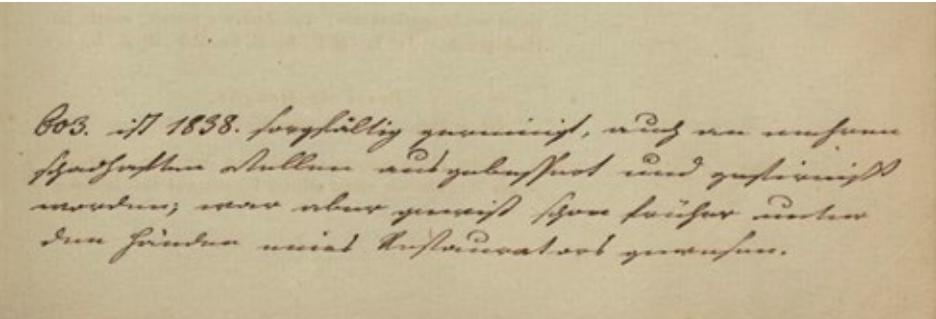 603. ist 1838. sorgfältig gereinigt, auch an mehren
schadhaften Stellen ausgebessert und gefirnißt
worden; war aber gewiß schon früher unter
den Händen eines Restaurators gewesen.